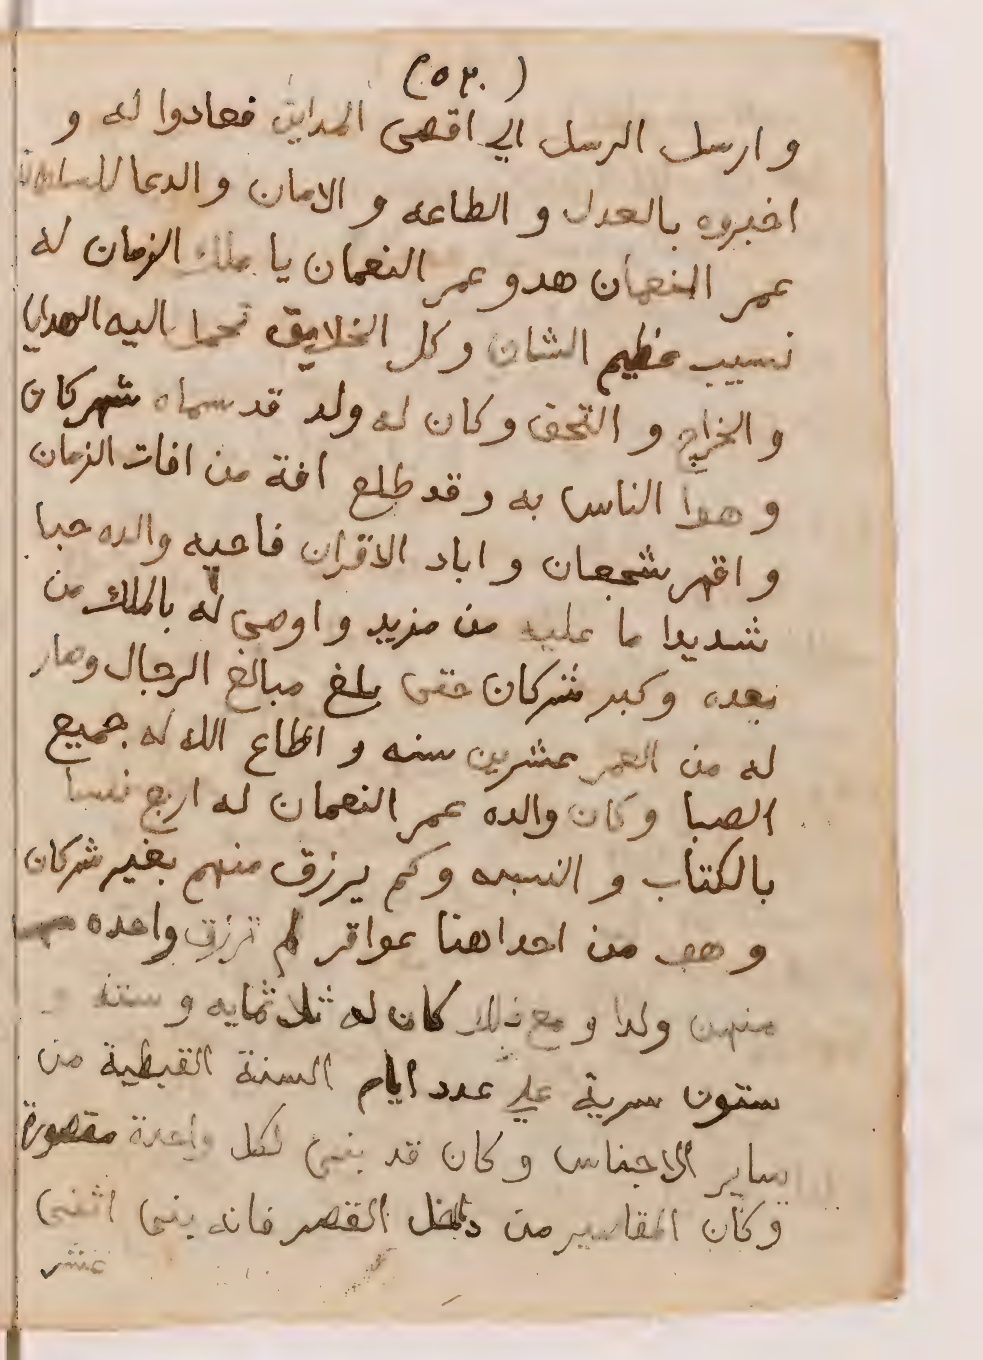 (٥٣٠)
و ارسل الرسل الي اقصى المداين فعادوا له و
اخبروه بالعدل و الطاعه و الامان و الدعا للسلطان
عمر النعمان هدو عمر النعمان يا ملك الزمان له
نسيب عظيم الشان و كل الخلايق تحمل اليه الهدايا
و الخراج و التحف و كان له ولد قد سماه شهركان
و هوا الناس به و قد طلع افة من افات الزمان
و اقهر شجعان و اباد الاقران فاحبه والده حبا
شديدا ما عليه من مزيد و اوصى له بالملك من
بعده و كبر شركان حتى بلغ مبالغ الرجال وصار
له من العمر عشرين سنه و اطاع الله له جميع
الصبا و كان والده عمر النعمان له اربع نسا
بالكتاب و النسبه و كم يرزق منهم بغير شركان
و هو من احداهنا عواقر لم ترزق واحده
منهن ولدا و مع ذلك كان له ثلاثمايه و ستة و
ستون سرية علي عدد ايام السنة القبطية من
ساير الاجناس و كان قد بنى لكل واحدة مقصورة
و كان المقاصير من داخل القصر فانه بنى اثنى
عشر